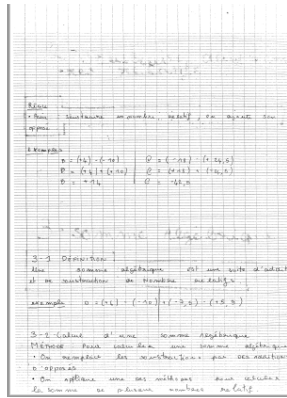 Règle
• Pour soustraire un nombre relatif, on ajoute son
opposé
Exemples
B = (+4) - (-10) C = (-18) - (+24,5)
B = (+4) + (+10) C = (-18) + (-24,5)
B = +14 C = -42,5
Somme algébrique
3-1 Définition
Une somme algébrique est une suite d'addit
et de soustraction de nombres relatifs.
exemple D = (+4) + (-10) + (-7,3) - (+5,3)
3-2 Calcul d'une somme algébrique
Méthode Pour calculer une somme algébrique
• On remplace les soustractions par des additions
d'opposés
• On applique une des méthodes pour calculer
la somme de plusieurs nombres relatifs.